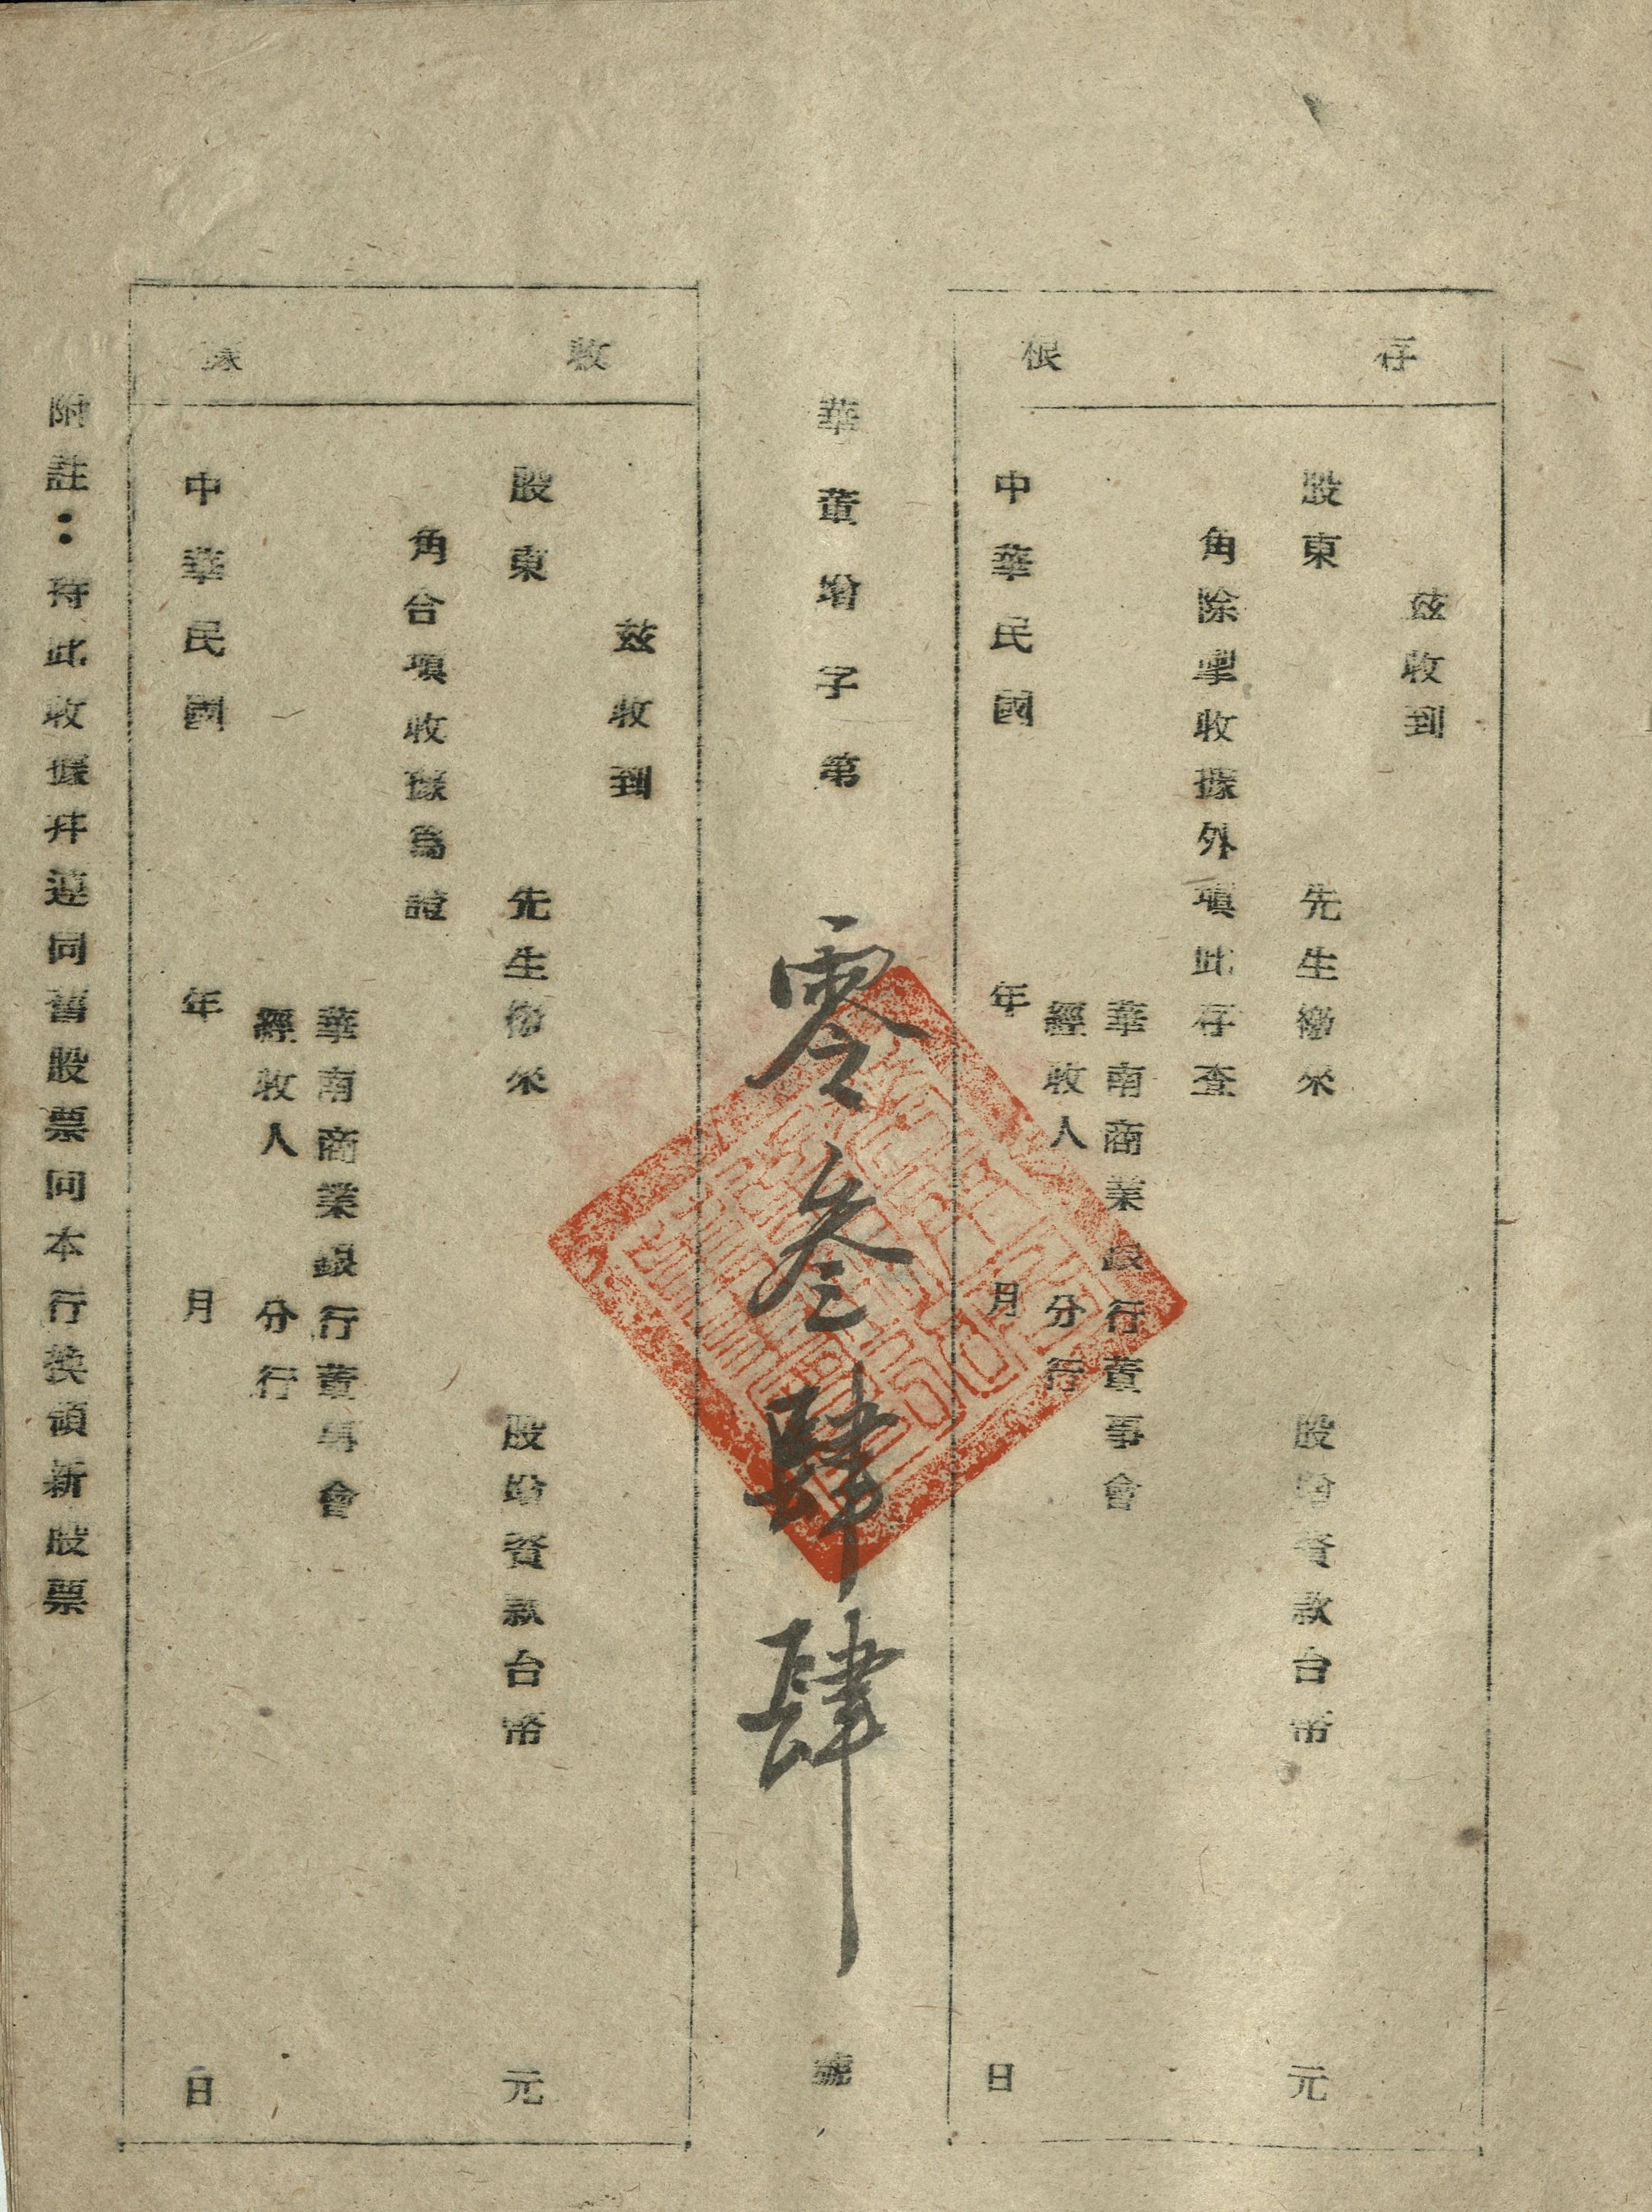 存根
茲收到
股東 先生繳來 股增資款台幣 元
角除掣收據外填此存查
華南商業銀行董事會
經收人 分行
中華民國 年 月 日
華董增字第 零叁肆肆 號
收據
茲收到
股東 先生繳來 股增資款台幣 元
角合填收據為證
華南商業銀行董事會
經收人 分行
中華民國 年 月 日
附註：持此收據幷連同舊股票向本行換領新股票